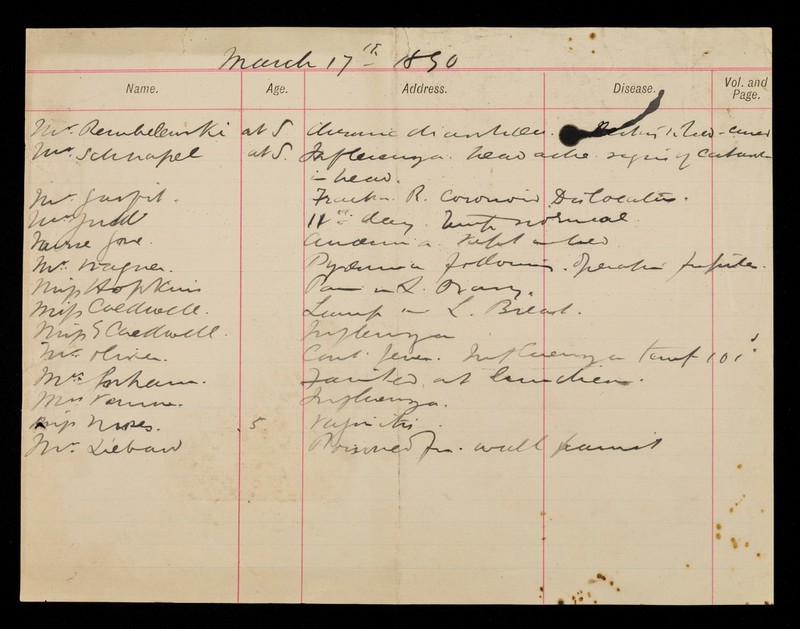 March 17th 1890
Name. Age. Address. Disease. Vol. and Page.
Mr. Rembelewski at S chronic diarrhoea. in bed - cured
Mr. Schnapel at S. Influenza. head ache. signs of Catarrh
in head.
Mr. Fractr. R. Coronoid Dislocation.
Mrs Judd 11th day. temp normal
Nurse Gore. Anaemia. kept in bed
Mr. Wagner. Pyaemia following operation
Miss Hopkins Pain in L. Ovary.
Miss Caldwell. Lump in L. Breast.
Miss E Caldwell. Influenza
Mr. Oliver. Cont. fever. Influenza temp 101°
Mrs. Parham. Fainted at luncheon.
Mrs Influenza.
Miss Moses. 5 Vaginitis.
Mr. Liebard Poisoned fr. wall paint